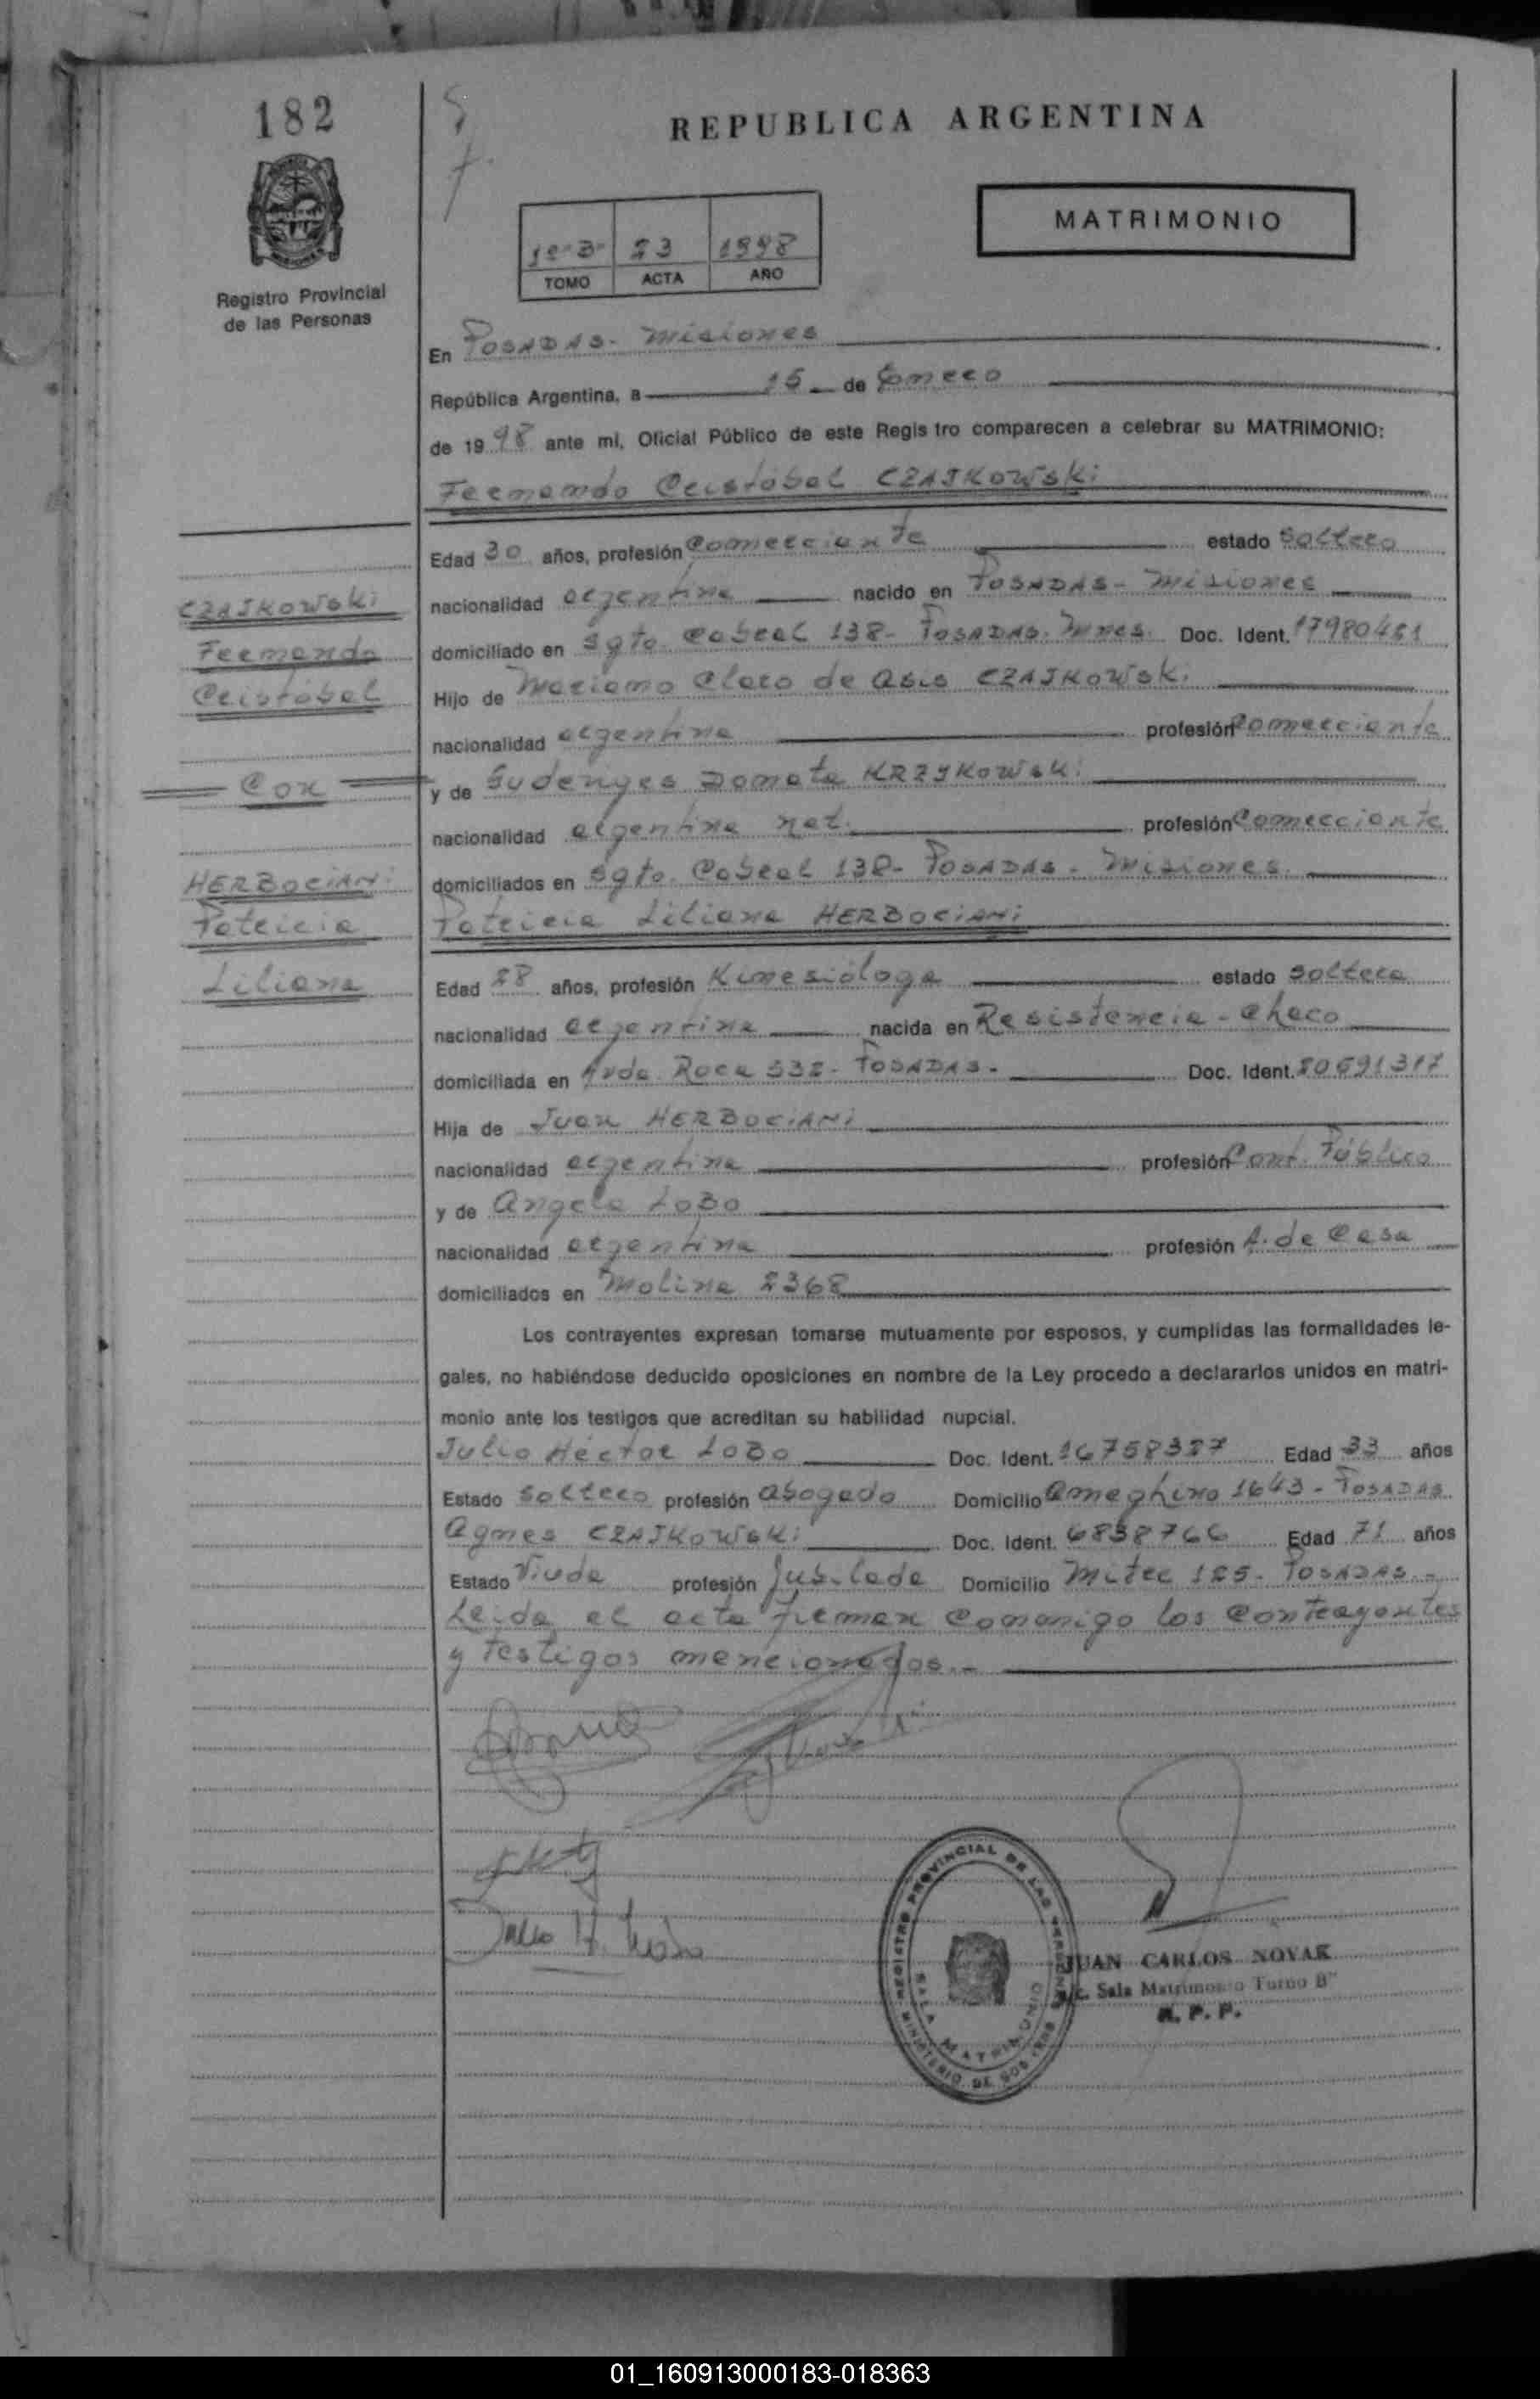 182
REPUBLICA ARGENTINA
MATRIMONIO
1º-B- 23 1998
TOMO ACTA AÑO
Registro Provincial
de las Personas
En POSADAS- Misiones
República Argentina, a 15 de Enero
de 1998 ante mí, Oficial Público de este Registro comparecen a celebrar su MATRIMONIO:
Fernando Cristóbal CZAJKOWSKi
Edad 30 años, profesión Comerciante estado Soltero
CZAJKOWSKi
nacionalidad argentina nacido en POSADAS- Misiones
Fernando
domiciliado en Sgto. Cabral 138- POSADAS. Mnes. Doc. Ident. 17980451
Cristóbal
Hijo de Mariano Claro de Asis CZAJKOWSKi
nacionalidad argentina profesión Comerciante
Con
y de Donata KRZYKOWSKi
nacionalidad argentina nat. profesión Comerciante
HERBOCIANi
domiciliados en Sgto. Cabral 138- POSADAS- Misiones.
Patricia
Patricia Liliana HERBOCIANi
Liliana
Edad 28 años, profesión Kinesióloga estado Soltera
nacionalidad argentina nacida en Resistencia- Chaco
domiciliada en Avda. Roca POSADAS- Doc. Ident. 20691317
Hija de Juan HERBOCIANi
nacionalidad argentina profesión Cont. Público
y de Angela LOBO
nacionalidad argentina profesión A. de Casa
domiciliados en Molina 2368
Los contrayentes expresan tomarse mutuamente por esposos, y cumplidas las formalidades le-
gales, no habiéndose deducido oposiciones en nombre de la Ley procedo a declararlos unidos en matri-
monio ante los testigos que acreditan su habilidad nupcial.
Julio Héctor LOBO Doc. Ident. 16758327 Edad 33 años
Estado Soltero profesión Abogado Domicilio Ameghino 1643- POSADAS
Agnes CZAJKOWSKi Doc. Ident. 6838766 Edad 71 años
Estado Viuda profesión Jubilada Domicilio Mitre 125- POSADAS.-
Leida el acta firman conmigo los contrayentes
y testigos mencionados.-
Julio H. Lobo
REGISTRO PROVINCIAL DE LAS PERSONAS
SALA MATRIMONIO
MINISTERIO DE GOBIERNO
JUAN CARLOS NOVAK
Sala Matrimonio Turno "B"
R. P. P.
01_160913000183-018363